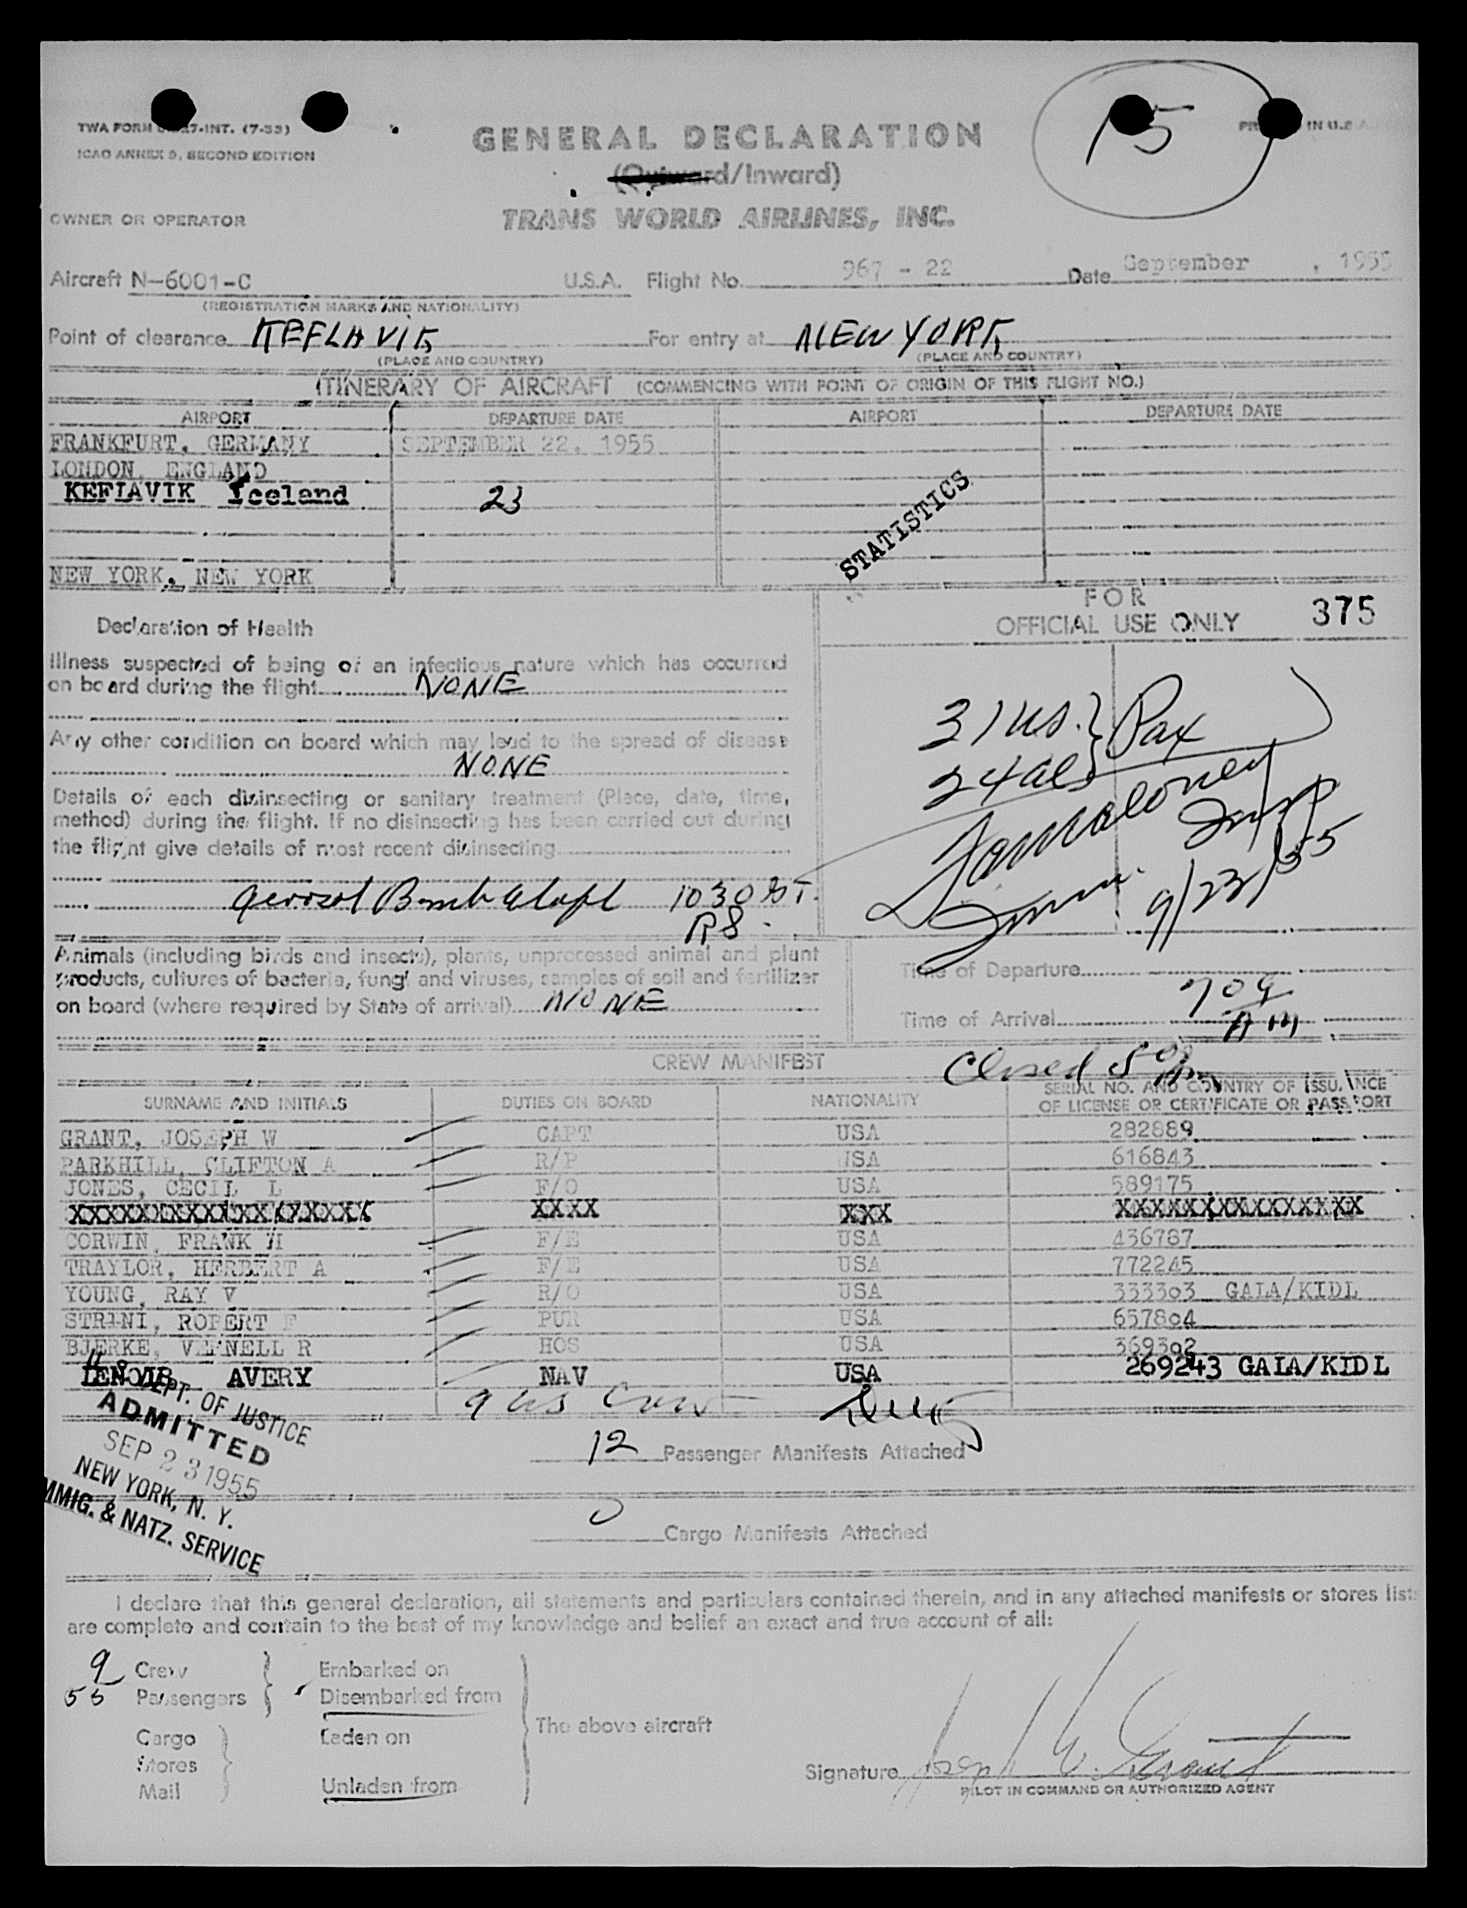 TWA FORM 7-INT. (7-55)
ICAO ANNEX 9, SECOND EDITION
15
IN U.S.A.
GENERAL DECLARATION
(Outward/Inward)
OWNER OR OPERATOR
TRANS WORLD AIRLINES, INC.
Aircraft N-6001-C U.S.A. Flight No. 967 - 22 Date September , 1955
(REGISTRATION MARKS AND NATIONALITY)
Point of clearance KEFLAVIK For entry at NEW YORK
(PLACE AND COUNTRY) (PLACE AND COUNTRY)
ITINERARY OF AIRCRAFT (COMMENCING WITH POINT OF ORIGIN OF THIS FLIGHT NO.)
AIRPORT DEPARTURE DATE AIRPORT DEPARTURE DATE
FRANKFURT, GERMANY SEPTEMBER 22, 1955
LONDON, ENGLAND
KEFLAVIK Iceland 23
STATISTICS
NEW YORK, NEW YORK
FOR
OFFICIAL USE ONLY 375
Declaration of Health
Illness suspected of being of an infectious nature which has occurred
on board during the flight NONE
Any other condition on board which may lead to the spread of disease
NONE
Details of each disinsecting or sanitary treatment (Place, date, time,
method) during the flight. If no disinsecting has been carried out during
the flight give details of most recent disinsecting
Aerosol Bomb Aloft 1030 T.
RS.
31 US. } Pax
24 als
Insp
Imm. 9/23/55
Animals (including birds and insects), plants, unprocessed animal and plant
products, cultures of bacteria, fungi and viruses, samples of soil and fertilizer
on board (where required by State of arrival) NONE
Time of Departure
Time of Arrival 709 AM
CREW MANIFEST
Closed
SURNAME AND INITIALS DUTIES ON BOARD NATIONALITY SERIAL NO. AND COUNTRY OF ISSUANCE
OF LICENSE OR CERTIFICATE OR PASSPORT
GRANT, JOSEPH W CAPT USA 282889
PARKHILL, CLIFTON A R/P USA 616843
JONES, CECIL L F/O USA 589175
XXXXXXXXXXXXXXXXXXX XXXX XXX XXXXXXXXXXXXXXXX
CORWIN, FRANK H F/E USA 436787
TRAYLOR, HERBERT A F/E USA 772245
YOUNG, RAY V R/O USA 333303 GALA/KIDL
STRINI, ROBERT F PUR USA 657804
BJERKE, VERNELL R HOS USA 369302
LENOIR AVERY NAV USA 269243 GALA/KIDL
9 US Crew
U.S. DEPT. OF JUSTICE
ADMITTED
SEP 23 1955
NEW YORK, N. Y.
IMMIG. & NATZ. SERVICE
12 Passenger Manifests Attached
0 Cargo Manifests Attached
I declare that this general declaration, all statements and particulars contained therein, and in any attached manifests or stores lists
are complete and contain to the best of my knowledge and belief an exact and true account of all:
9 Crew Embarked on
55 Passengers Disembarked from
The above aircraft
Cargo Laden on
Stores
Mail Unladen from
Signature Joseph W. Grant
PILOT IN COMMAND OR AUTHORIZED AGENT